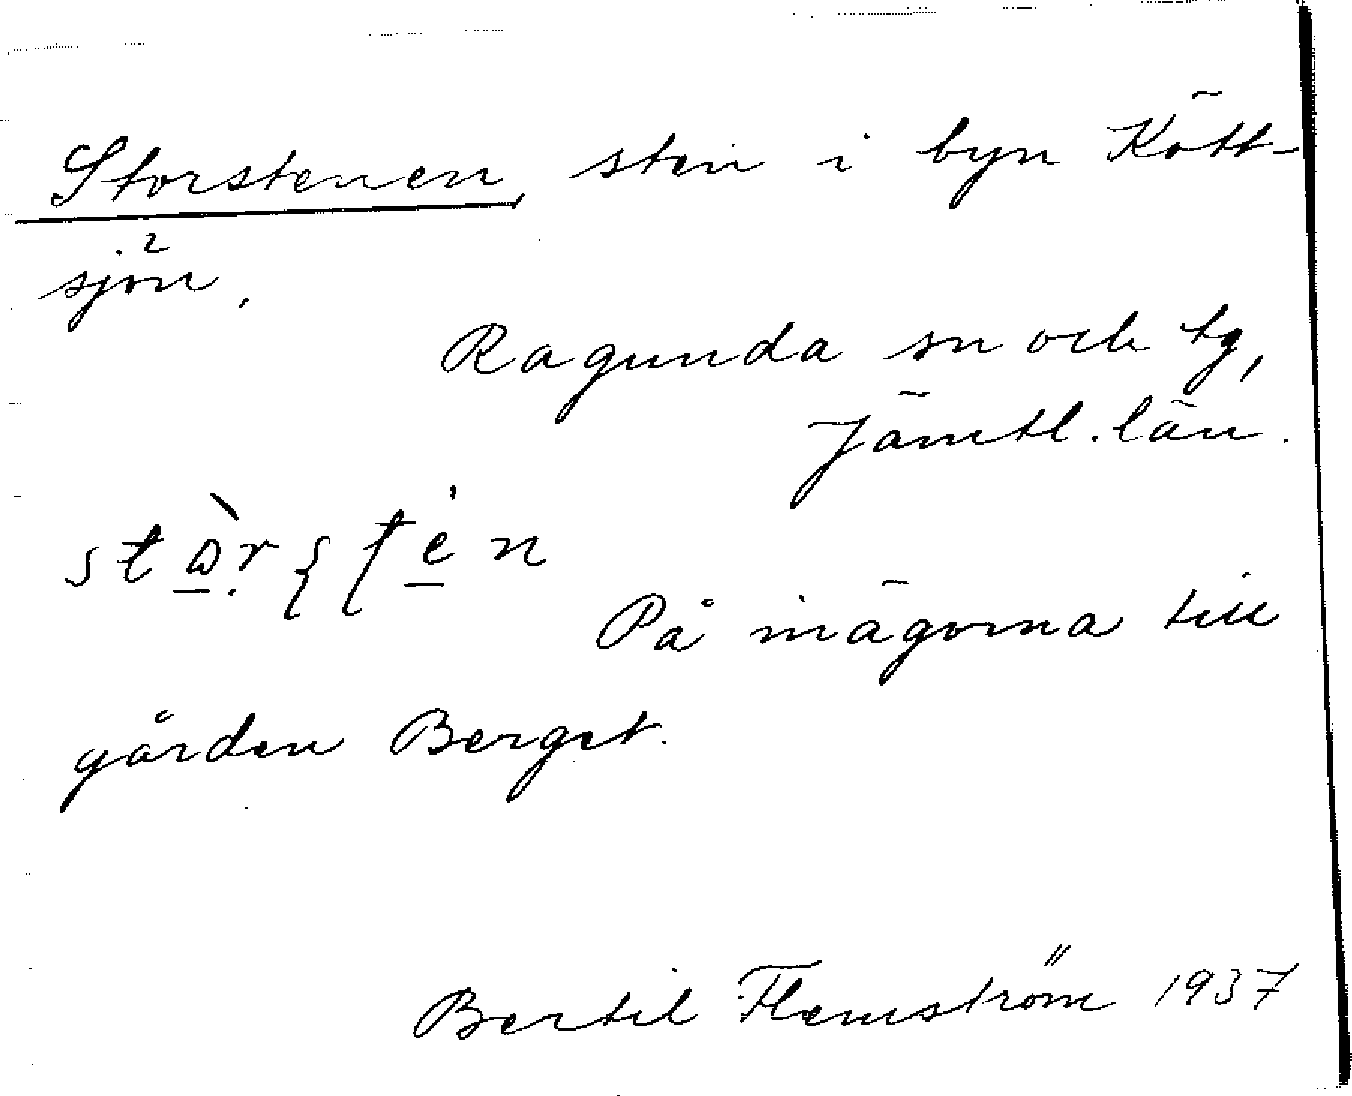 Storstenen, sten i byn Kött-
sjön.
Ragunda sn och tg,
Jämtl. län.
På inägorna till
gården Berget.
Bertil Flemström 1937